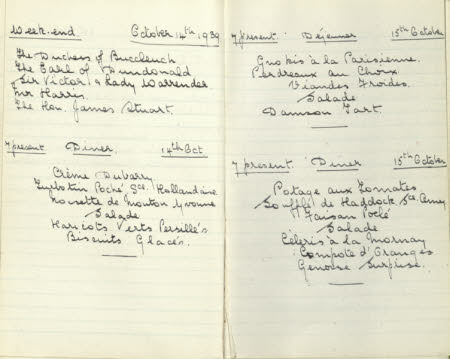 Week-end. October 14th 1939
The Duchess of Buccleuch
The Earl of Dundonald
Sir Victor & Lady Warrender
Mr Harris.
The Hon. James Stuart.
7 present Diner. 14th Oct
Crème Dubarry
Turbotin Poché Sce. Hollandaise
Noisette de mouton Yvonne
Salade
Haricots Verts Persillés
Biscuits Glacés.
7 present. Dejeuner 15th October
Gnokis à la Parisienne.
Perdreaux au Choux
Viandes Froides.
Salade
Damson Tart.
7 present. Diner 15th October
Potage aux Tomates
Soufflé de Haddock Sce
Faisan Poêlé
Salade
Céleris à la Mornay
Compote d'Oranges
Genoese Surprise.